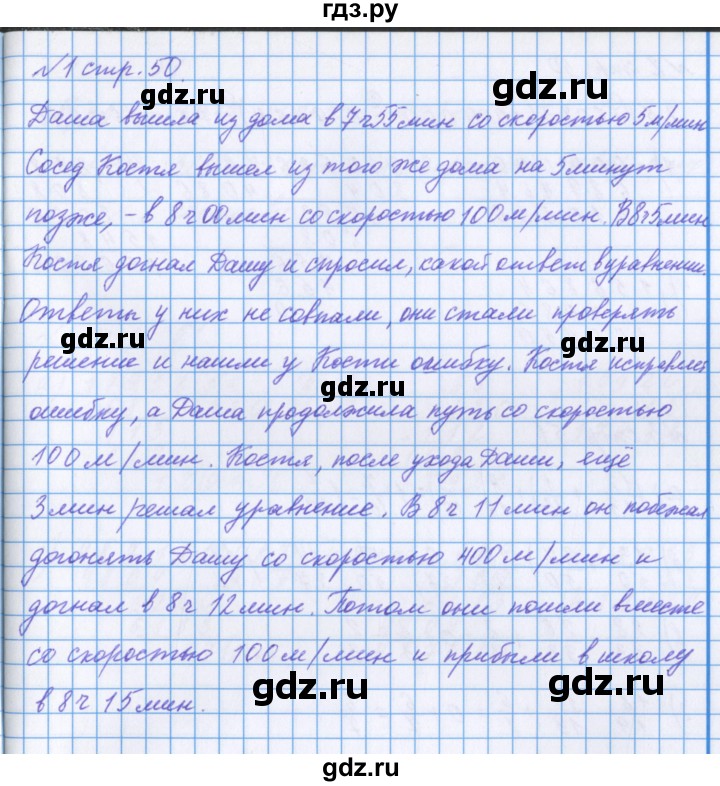 гдз.ру
№1 стр. 50.
gdz.ru
gdz.ru
Даша вышла из дома в 7ч55мин со скоростью 5м/мин
Сосед Костя вышел из того же дома на 5минут
позже, – в 8ч00мин со скоростью 100м/мин. В8ч5мин
gdz.ru
gdz.ru
Костя догнал Дашу и спросил, какой ответ в уравнении.
Ответы у них не совпали, они стали проверять
gdz.ru
gdz.ru
решение и нашли у Кости ошибку. Костя исправлял
gdz.ru
ошибку, а Даша продолжила путь со скоростью
100м/мин. Костя, после ухода Даши, ещё
gdz.ru
gdz.ru
3мин решал уравнение. В 8ч 11мин он побежал
догонять Дашу со скоростью 400м/мин и
догнал в 8ч 12мин. Потом они пошли вместе
gdz.ru
со скоростью 100м/мин и прибыли в школу
gdz.ru
gdz.ru
в 8ч 15мин.
gdz.ru